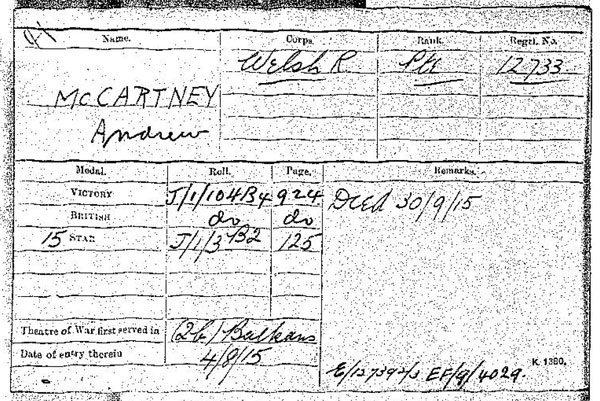 Name. Corps. Rank. Regtl. No.
Welsh R. Pte 12733
McCARTNEY
Andrew
Medal. Roll. Page. Remarks.
VICTORY J/1/104B4 924 Died 30/9/15
BRITISH do do
15 STAR J/1/3B2 125
Theatre of War first served in (2b) Balkans
Date of entry therein 4/8/15
K. 1380.
EF/9/4029.